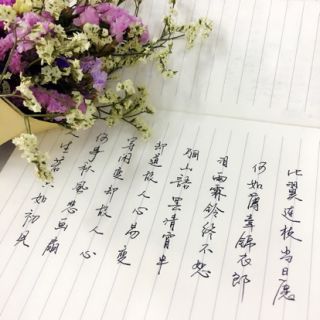 比翼连枝当日愿
何如薄幸锦衣郎
泪雨霖铃终不怨
骊山語罢清宵半
却道故人心易变
等闲变却故人心
何事秋风悲画扇
生若只如初见